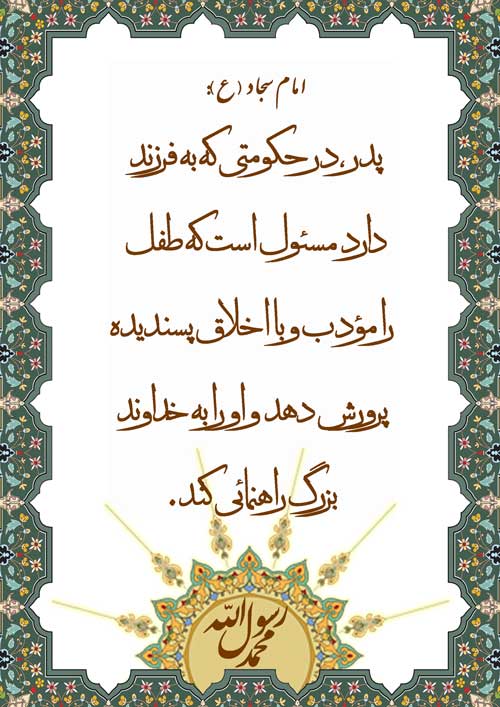 امام سجاد (ع):
پدر، در حکومتی که به فرزند
دارد مسئول است که طفل
را مؤدب و با اخلاق پسندیده
پرورش دهد و او را به خداوند
بزرگ راهنمائی کند.
محمد رسول الله